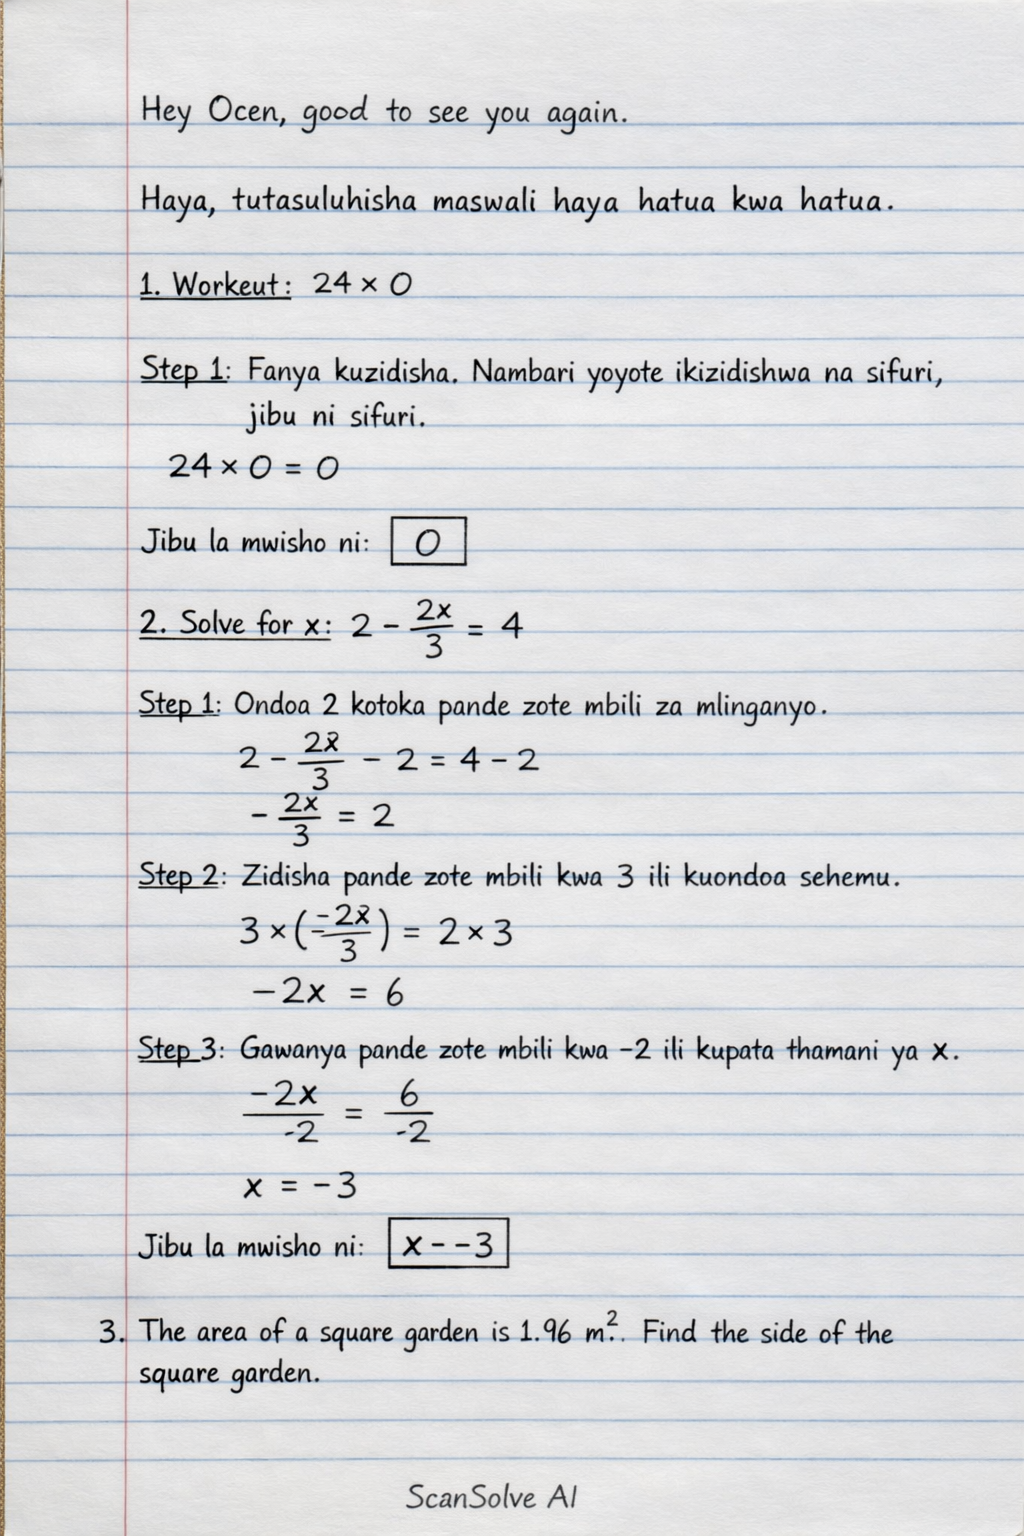 Hey Ocen, good to see you again.
Haya, tutasuluhisha maswali haya hatua kwa hatua.
1. Workeut: 24 × 0
Step 1: Fanya kuzidisha. Nambari yoyote ikizidishwa na sifuri,
jibu ni sifuri.
24 × 0 = 0
Jibu la mwisho ni: 0
2. Solve for x: 2 - 2x/3 = 4
Step 1: Ondoa 2 kotoka pande zote mbili za mlinganyo.
2 - 2x/3 - 2 = 4 - 2
- 2x/3 = 2
Step 2: Zidisha pande zote mbili kwa 3 ili kuondoa sehemu.
3 × (-2x/3) = 2 × 3
-2x = 6
Step 3: Gawanya pande zote mbili kwa -2 ili kupata thamani ya x.
-2x/-2 = 6/-2
x = -3
Jibu la mwisho ni: x - -3
3. The area of a square garden is 1.96 m². Find the side of the
square garden.
ScanSolve AI